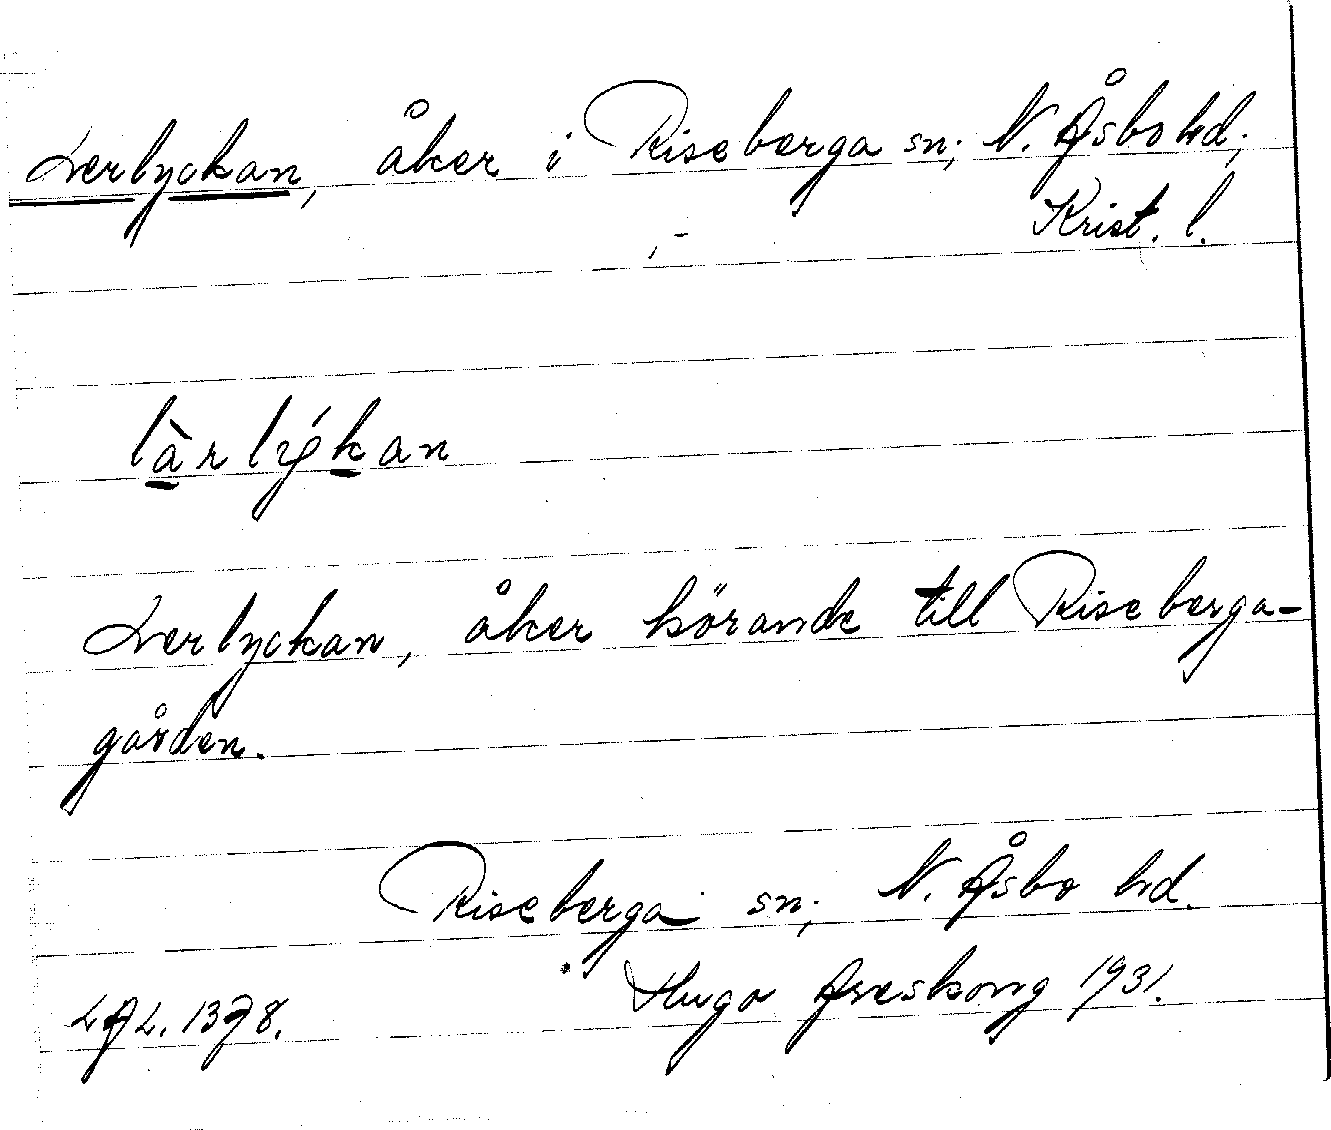 Lerlyckan, åker i Riseberga sn; N. Åsbo hd;
Krist. l.
làrlýkan
Lerlyckan, åker hörande till Riseberga-
gården.
Riseberga sn; N. Åsbo hd.
Hugo Areskoug 1931.
LAL. 1378.